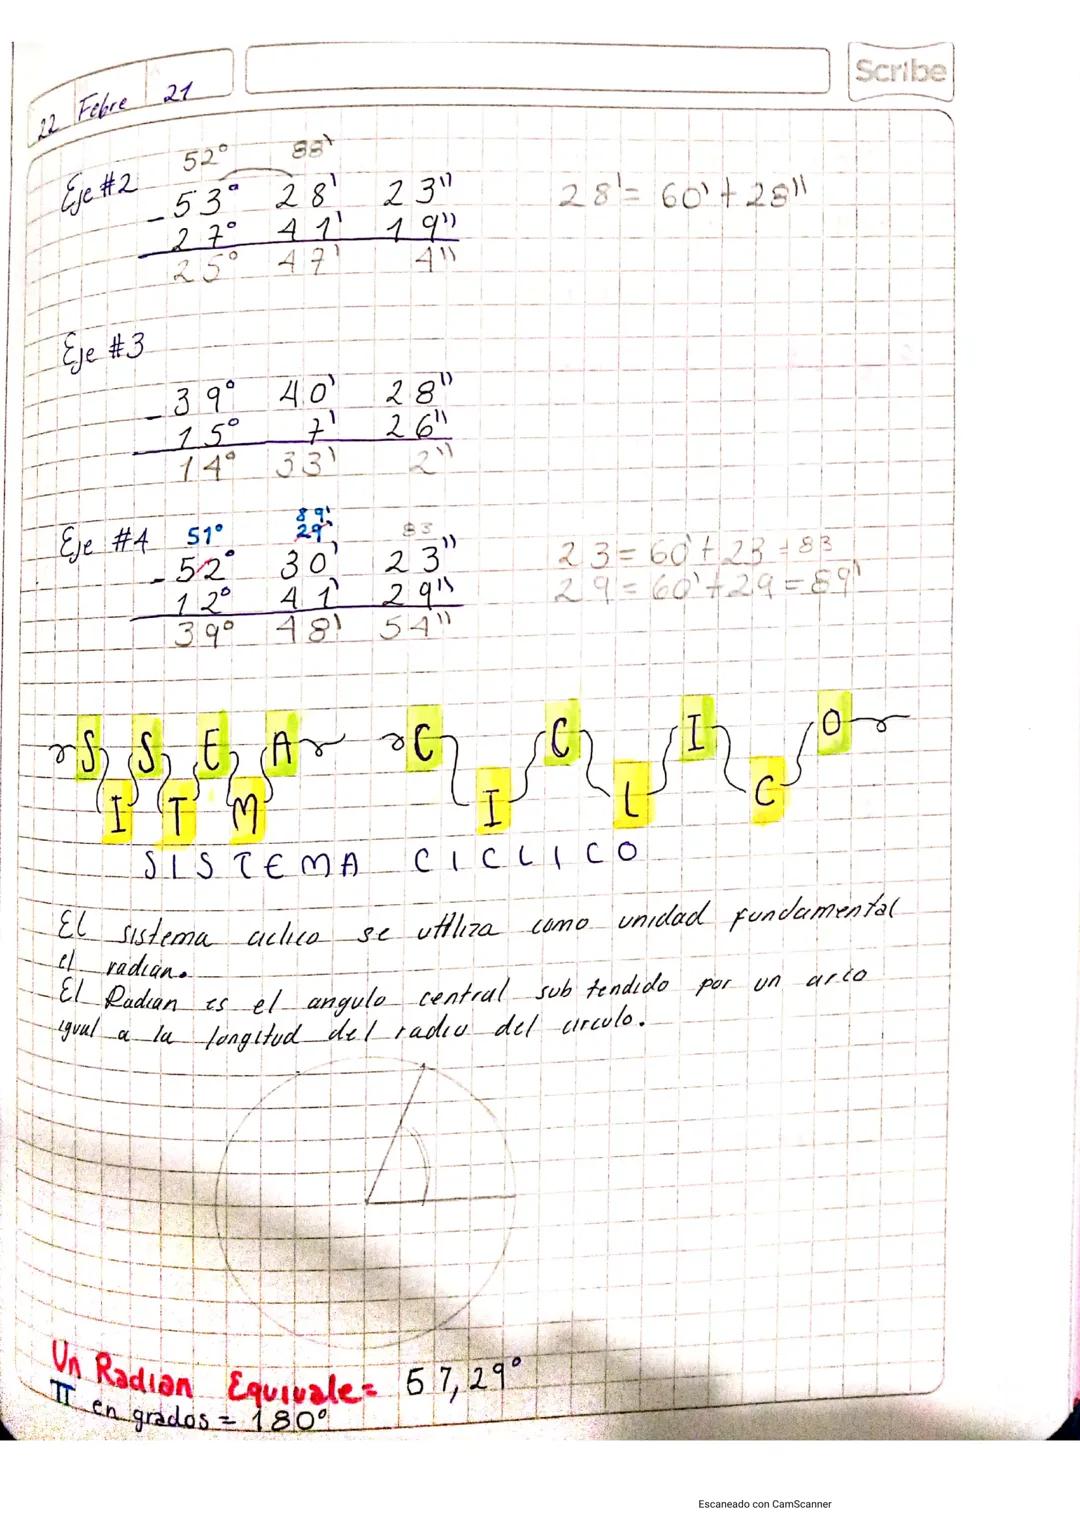 22 Febre 21
Scribe
52° 88'
Eje #2
53° 28' 23'' 28'= 60'+28''
- 27° 41' 19''
25° 47' 4''
Eje #3
39° 40' 28''
- 15° 7' 26''
14° 33' 2''
Eje #4 51° 89' 83
29'
52° 30' 23'' 23=60'+23=83
- 12° 41' 29'' 29=60'+29=89'
39° 48' 54''
SISTEMA CICLICO
SISTEMA CICLICO
El sistema ciclico se utiliza como unidad fundamental
el radian.
El Radian es el angulo central sub tendido por un arco
igual a la longitud del radio del circulo.
Un Radian Equivale= 57,29°
π en grados = 180°
Escaneado con CamScanner